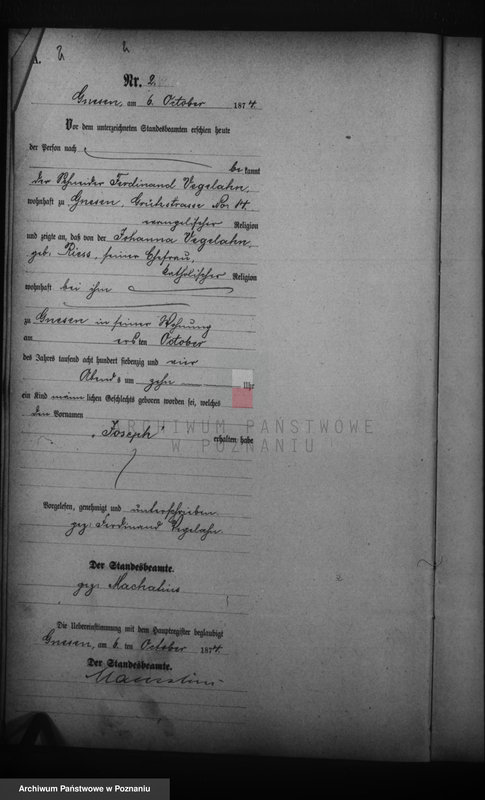 A.
Nr. 2.
Gnesen, am 6. October 1874.
Vor dem unterzeichneten Standesbeamten erschien heute
der Person nach
bekannt
der Schneider Ferdinand Vegelahn,
wohnhaft zu Gnesen, No: 14
evangelischer Religion
und zeigte an, daß von der Johanna Vegelahn,
geb. Riess, seiner Ehefrau,
katholischer Religion
wohnhaft bei ihm
zu Gnesen in seiner Wohnung
am ersten October
des Jahres tausend acht hundert siebenzig und vier
Abends um zehn Uhr
ein Kind männlichen Geschlechts geboren worden sei, welches
den Vornamen
„Joseph“ erhalten habe
ARCHIWUM PAŃSTWOWE
W POZNANIU
Vorgelesen, genehmigt und unterschrieben.
gez: Ferdinand Vegelahn.
Der Standesbeamte.
gez: Machatius
Die Uebereinstimmung mit dem Hauptregister beglaubigt
Gnesen, am 6. ten October 1874.
Der Standesbeamte.
Machatius
Archiwum Państwowe w Poznaniu